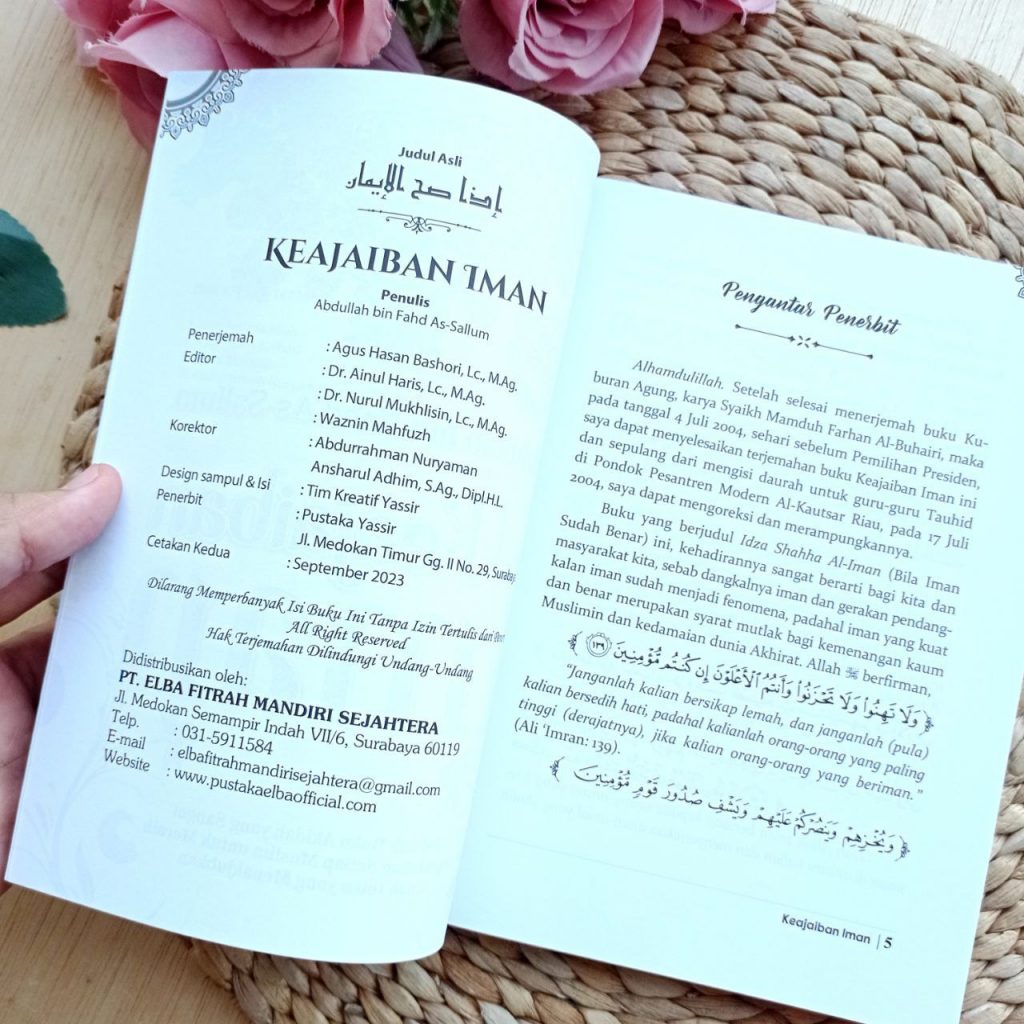 Judul Asli
إذا صح الإيمان
KEAJAIBAN IMAN
Penulis
Abdullah bin Fahd As-Sallum
Penerjemah : Agus Hasan Bashori, Lc., M.Ag.
Editor : Dr. Ainul Haris, Lc., M.Ag.
: Dr. Nurul Mukhlisin, Lc., M.Ag.
: Waznin Mahfuzh
Korektor : Abdurrahman Nuryaman
Ansharul Adhim, S.Ag., Dipl.H.L.
Design sampul & Isi : Tim Kreatif Yassir
Penerbit : Pustaka Yassir
Jl. Medokan Timur Gg. II No. 29, Surabaya
Cetakan Kedua : September 2023
Dilarang Memperbanyak Isi Buku Ini Tanpa Izin Tertulis dari
All Right Reserved
Hak Terjemahan Dilindungi Undang-Undang
Didistribusikan oleh:
PT. ELBA FITRAH MANDIRI SEJAHTERA
Jl. Medokan Semampir Indah VII/6, Surabaya 60119
Telp. : 031-5911584
E-mail : elbafitrahmandirisejahtera@gmail.com
Website : www.pustakaelbaofficial.com
Pengantar Penerbit
Alhamdulillah. Setelah selesai menerjemah buku Ku-
buran Agung, karya Syaikh Mamduh Farhan Al-Buhairi, maka
pada tanggal 4 Juli 2004, sehari sebelum Pemilihan Presiden,
saya dapat menyelesaikan terjemahan buku Keajaiban Iman ini
dan sepulang dari mengisi daurah untuk guru-guru Tauhid
di Pondok Pesantren Modern Al-Kautsar Riau, pada 17 Juli
2004, saya dapat mengoreksi dan merampungkannya.
Buku yang berjudul Idza Shahha Al-Iman (Bila Iman
Sudah Benar) ini, kehadirannya sangat berarti bagi kita dan
masyarakat kita, sebab dangkalnya iman dan gerakan pendang-
kalan iman sudah menjadi fenomena, padahal iman yang kuat
dan benar merupakan syarat mutlak bagi kemenangan kaum
Muslimin dan kedamaian dunia Akhirat. Allah ﷻ berfirman,
﴿ وَلَا تَهِنُوا وَلَا تَحْزَنُوا وَأَنتُمُ الْأَعْلَوْنَ إِن كُنتُم مُّؤْمِنِينَ ١٣٩ ﴾
"Janganlah kalian bersikap lemah, dan janganlah (pula)
kalian bersedih hati, padahal kalianlah orang-orang yang paling
tinggi (derajatnya), jika kalian orang-orang yang beriman."
(Ali 'Imran: 139).
﴿ وَيُخْزِهِمْ وَيَنصُرْكُمْ عَلَيْهِمْ وَيَشْفِ صُدُورَ قَوْمٍ مُّؤْمِنِينَ ﴾
Keajaiban Iman | 5